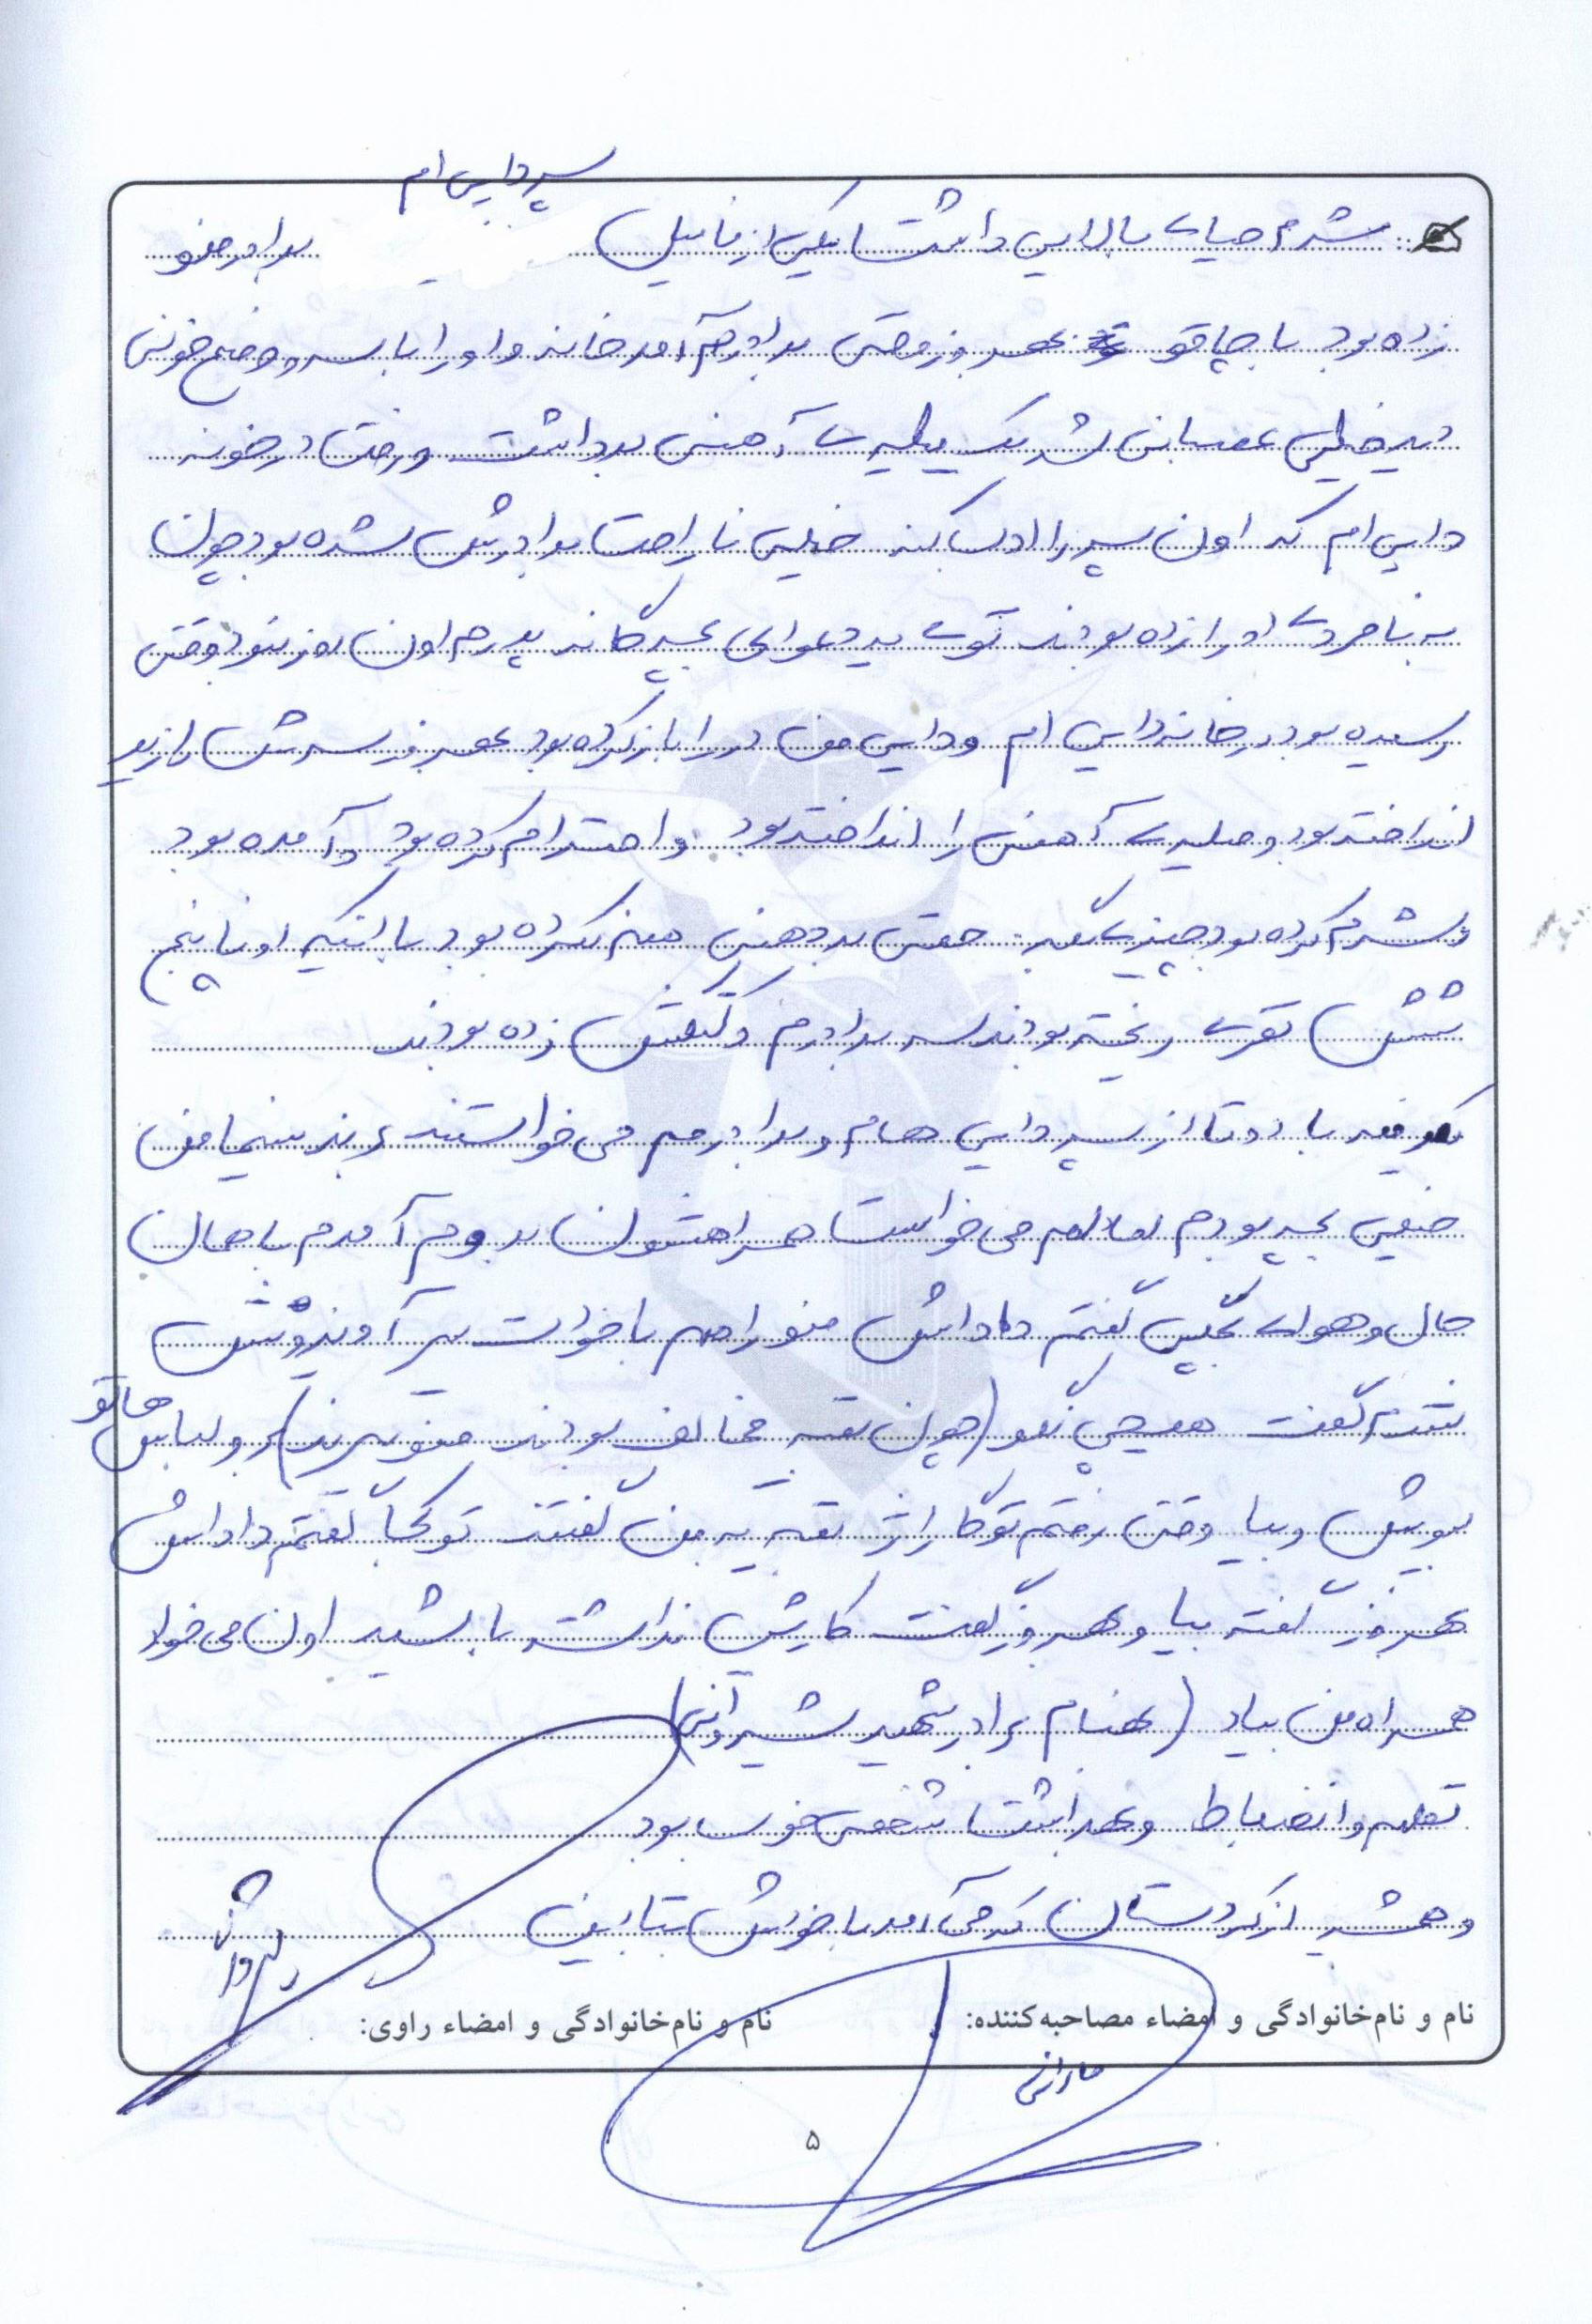 پسر دایی ام
شرم حیای بالایی داشت یکی از فامیل برادر منو
زده بود با چاقو بهروز وقتی برادرم آمد خانه و او را با سر و وضع خونی
دید خیلی عصبانی شد یک میله ی آهنی برداشت و رفت در خونه
دایی ام که اون پسر را ادب کنه خیلی ناراحت برادرش شده بود چون
به نامردی او را زده بودند توی یه دعوای بچه گانه پدرم اون روز نبود وقتی
رسیده بود در خانه دایی ام و دایی من در را باز کرده بود بهروز سرش پازیر
انداخته بود و میله ی آهنی را انداخته بود و احترام کرده بود و آمده بود
و شرم کرده بود چیزی بگه حتی به دهنی هم نکرده بود با اینکه اونا پنج
شش نفری ریخته بودند سر برادرم و کتفش زده بودند
یه دفعه با دو تا از پسر دایی هام و برادرم می خواستند برند سینما من
خیلی بچه بودم اما دلم می خواست همراهشون بروم آمدم با همان
حال و هوای بچگی گفتم داداش منو را هم با خودت ببر آویزونش
شدم گفت هیچی نگو (چون بقیه مخالف بودند منو ببرند) برو لباس هاتو
بپوش و بیا وقتی رفتم تو گاراژ بقیه به من گفتند تو کجا گفتم داداش
بهروز گفته بیا و بهروز گفت کارش نداشته باشید اون می خواد
همراه من بیاد (بهنام برادر شهید شیروانی)
تعلیم و انضباط و بهداشت شخصی خوب بود
و همیشه از کردستان که می آمد با خودش
نام و نام‌خانوادگی و امضاء مصاحبه‌کننده: نام و نام‌خانوادگی و امضاء راوی:
۵